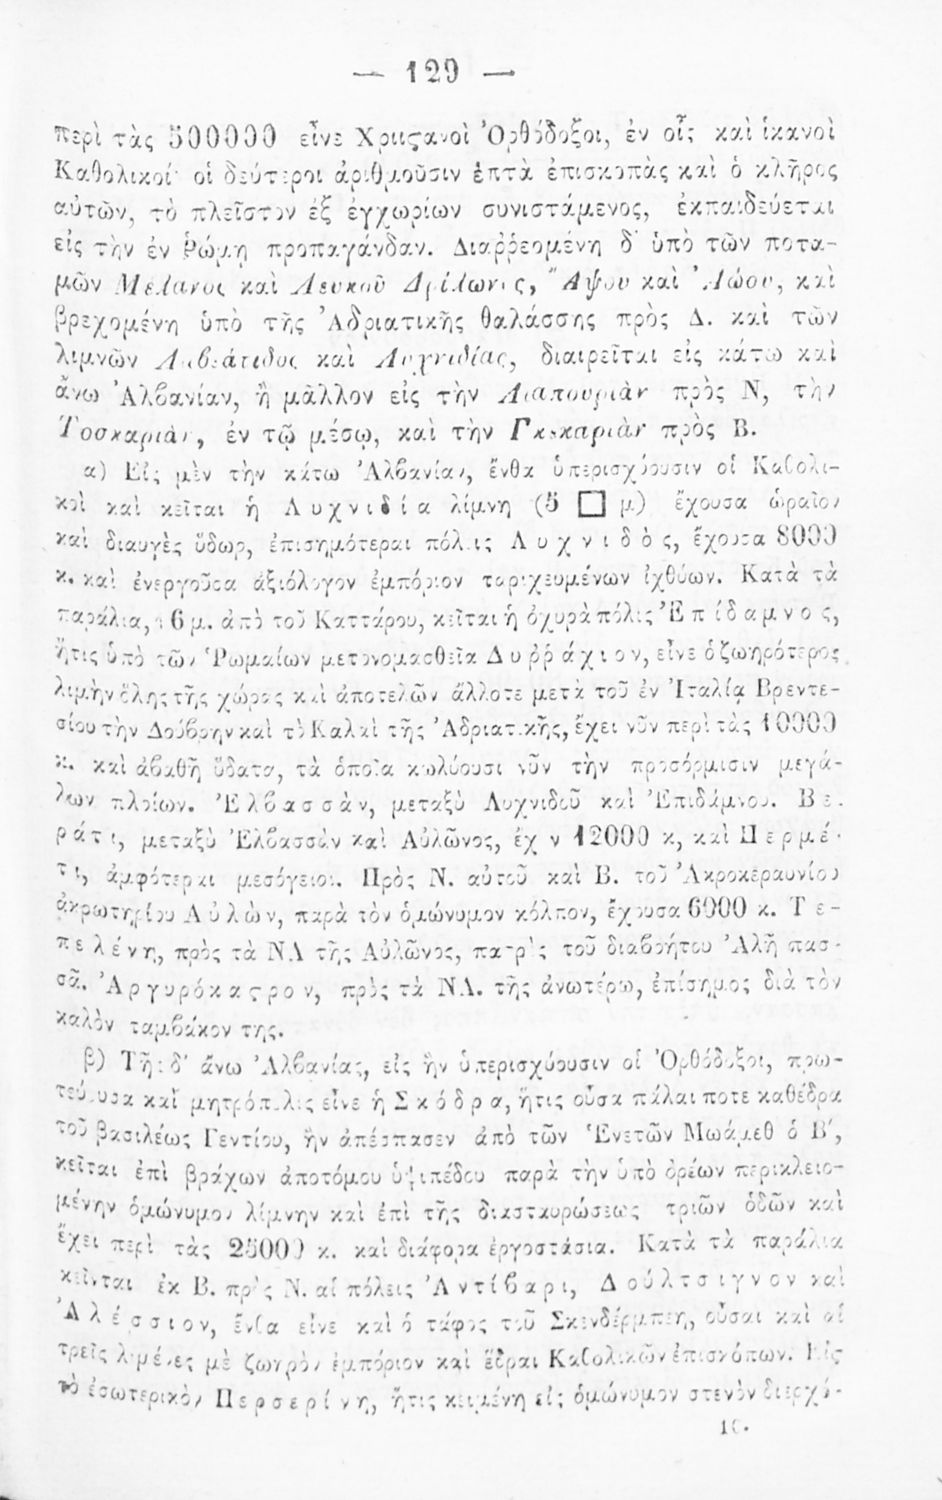 — 129 —
περὶ τὰς 500000 εἶνε Χριστιανοὶ Ὀρθόδοξοι, ἐν οἷς καὶ ἱκανοὶ
Καθολικοί· οἱ δεύτεροι ἀριθμοῦσιν ἑπτὰ ἐπισκοπὰς καὶ ὁ κλῆρος
αὐτῶν, τὸ πλεῖστον ἐξ ἐγχωρίων συνιστάμενος, ἐκπαιδεύεται
εἰς τὴν ἐν Ῥώμῃ προπαγάνδαν. Διαῤῥεομένη δ' ὑπὸ τῶν ποτα-
μῶν Μέλανος καὶ Λευκοῦ Δρίλωνος, Ἄψου καὶ Ἀώου, καὶ
βρεχομένη ὑπὸ τῆς Ἀδριατικῆς θαλάσσης πρὸς Δ. καὶ τῶν
λιμνῶν Λαβεάτιδος καὶ Λυχνιδίας, διαιρεῖται εἰς κάτω καὶ
ἄνω Ἀλβανίαν, ἢ μᾶλλον εἰς τὴν Λιαπουριὰν πρὸς Ν, τὴν
Τοσκαριὰν, ἐν τῷ μέσῳ, καὶ τὴν Γκεκαριὰν πρὸς Β.
α) Εἰς μὲν τὴν κάτω Ἀλβανίαν, ἔνθα ὑπερισχύουσιν οἱ Καθολι-
κοὶ καὶ κεῖται ἡ Λυχνιδία λίμνη (5 □ μ) ἔχουσα ὡραῖον
καὶ διαυγὲς ὕδωρ, ἐπισημότεραι πόλεις Λυχνιδὸς, ἔχουσα 8000
κ. καὶ ἐνεργοῦσα ἀξιόλογον ἐμπόριον ταριχευμένων ἰχθύων. Κατὰ τὰ
παράλια, 16 μ. ἀπὸ τοῦ Καττάρου, κεῖται ἡ ὀχυρὰ πόλις Ἐπίδαμνος,
ἥτις ὑπὸ τῶν Ῥωμαίων μετονομασθεῖα Δυῤῥάχιον, εἶνε ὁ ζωηρότερος
λιμὴν ὅλης τῆς χώρας καὶ ἀποτελῶν ἄλλοτε μετὰ τοῦ ἐν Ἰταλίᾳ Βρεντε-
σίου τὴν Δούβρην καὶ τὸ Καλαὶ τῆς Ἀδριατικῆς, ἔχει νῦν περὶ τὰς 10000
κ. καὶ ἀβαθῆ ὕδατα, τὰ ὁποῖα κωλύουσι νῦν τὴν προσόρμισιν μεγά-
λων πλοίων. Ἐλβασσὰν, μεταξὺ Λυχνιδοῦ καὶ Ἐπιδάμνου. Βε-
ράτι, μεταξὺ Ἐλβασσὰν καὶ Αὐλῶνος, ἔχον 12000 κ, καὶ Περμέ-
τι, ἀμφότεραι μεσόγειοι. Πρὸς Ν. αὐτοῦ καὶ Β. τοῦ Ἀκροκεραυνίου
ἀκρωτηρίου Αὐλὼν, παρὰ τὸν ὁμώνυμον κόλπον, ἔχουσα 6000 κ. Τε-
πελένη, πρὸς τὰ ΝΑ τῆς Αὐλῶνος, πατρὶς τοῦ διαβοήτου Ἀλῆ πασ-
σᾶ. Ἀργυρόκαστρον, πρὸς τὰ ΝΑ. τῆς ἀνωτέρω, ἐπίσημος διὰ τὸν
καλὸν ταμβάκον της.
β) Τῆς δ' ἄνω Ἀλβανίας, εἰς ἣν ὑπερισχύουσιν οἱ Ὀρθόδοξοι, πρω-
τεύουσα καὶ μητρόπολις εἶνε ἡ Σκόδρα, ἥτις οὖσα πάλαι ποτε καθέδρα
τοῦ βασιλέως Γεντίου, ἣν ἀπέσπασεν ἀπὸ τῶν Ἑνετῶν Μωάμεθ ὁ Β',
κεῖται ἐπὶ βράχων ἀποτόμου ὑψιπέδου παρὰ τὴν ὑπὸ ὀρέων περικλειο-
μένην ὁμώνυμον λίμνην καὶ ἐπὶ τῆς διασταυρώσεως τριῶν ὁδῶν καὶ
ἔχει περὶ τὰς 25000 κ. καὶ διάφορα ἐργοστάσια. Κατὰ τὰ παράλια
κεῖνται ἐκ Β. πρὸς Ν. αἱ πόλεις Ἀντίβαρι, Δούλτσιγνον καὶ
Ἀλέσσιον, ἔνθα εἶνε καὶ ὁ τάφος τοῦ Σκενδέρμπεη, οὖσαι καὶ αἱ
τρεῖς λιμένες μὲ ζωηρὸν ἐμπόριον καὶ ἕδραι Καθολικῶν ἐπισκόπων. Εἰς
τὸ ἐσωτερικὸν Περσερίνη, ἥτις κειμένη εἰς ὁμώνυμον στενὸν διερχό-